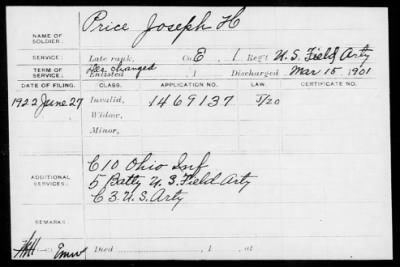 Price Joseph H
NAME OF SOLDIER:
SERVICE: Late rank, Co. E, 1 Reg't U.S. Field Arty
TERM OF SERVICE: Enlisted , 1 Discharged Mar 15, 1901
DATE OF FILING. CLASS. APPLICATION NO. LAW. CERTIFICATE NO.
1922 June 27 Invalid, 1469137 5/20
Widow,
Minor,
C 10 Ohio Inf
ADDITIONAL SERVICES: 5 Batty U.S. Field Arty
C 3. U.S. Arty
REMARKS:
Died , 1 , at